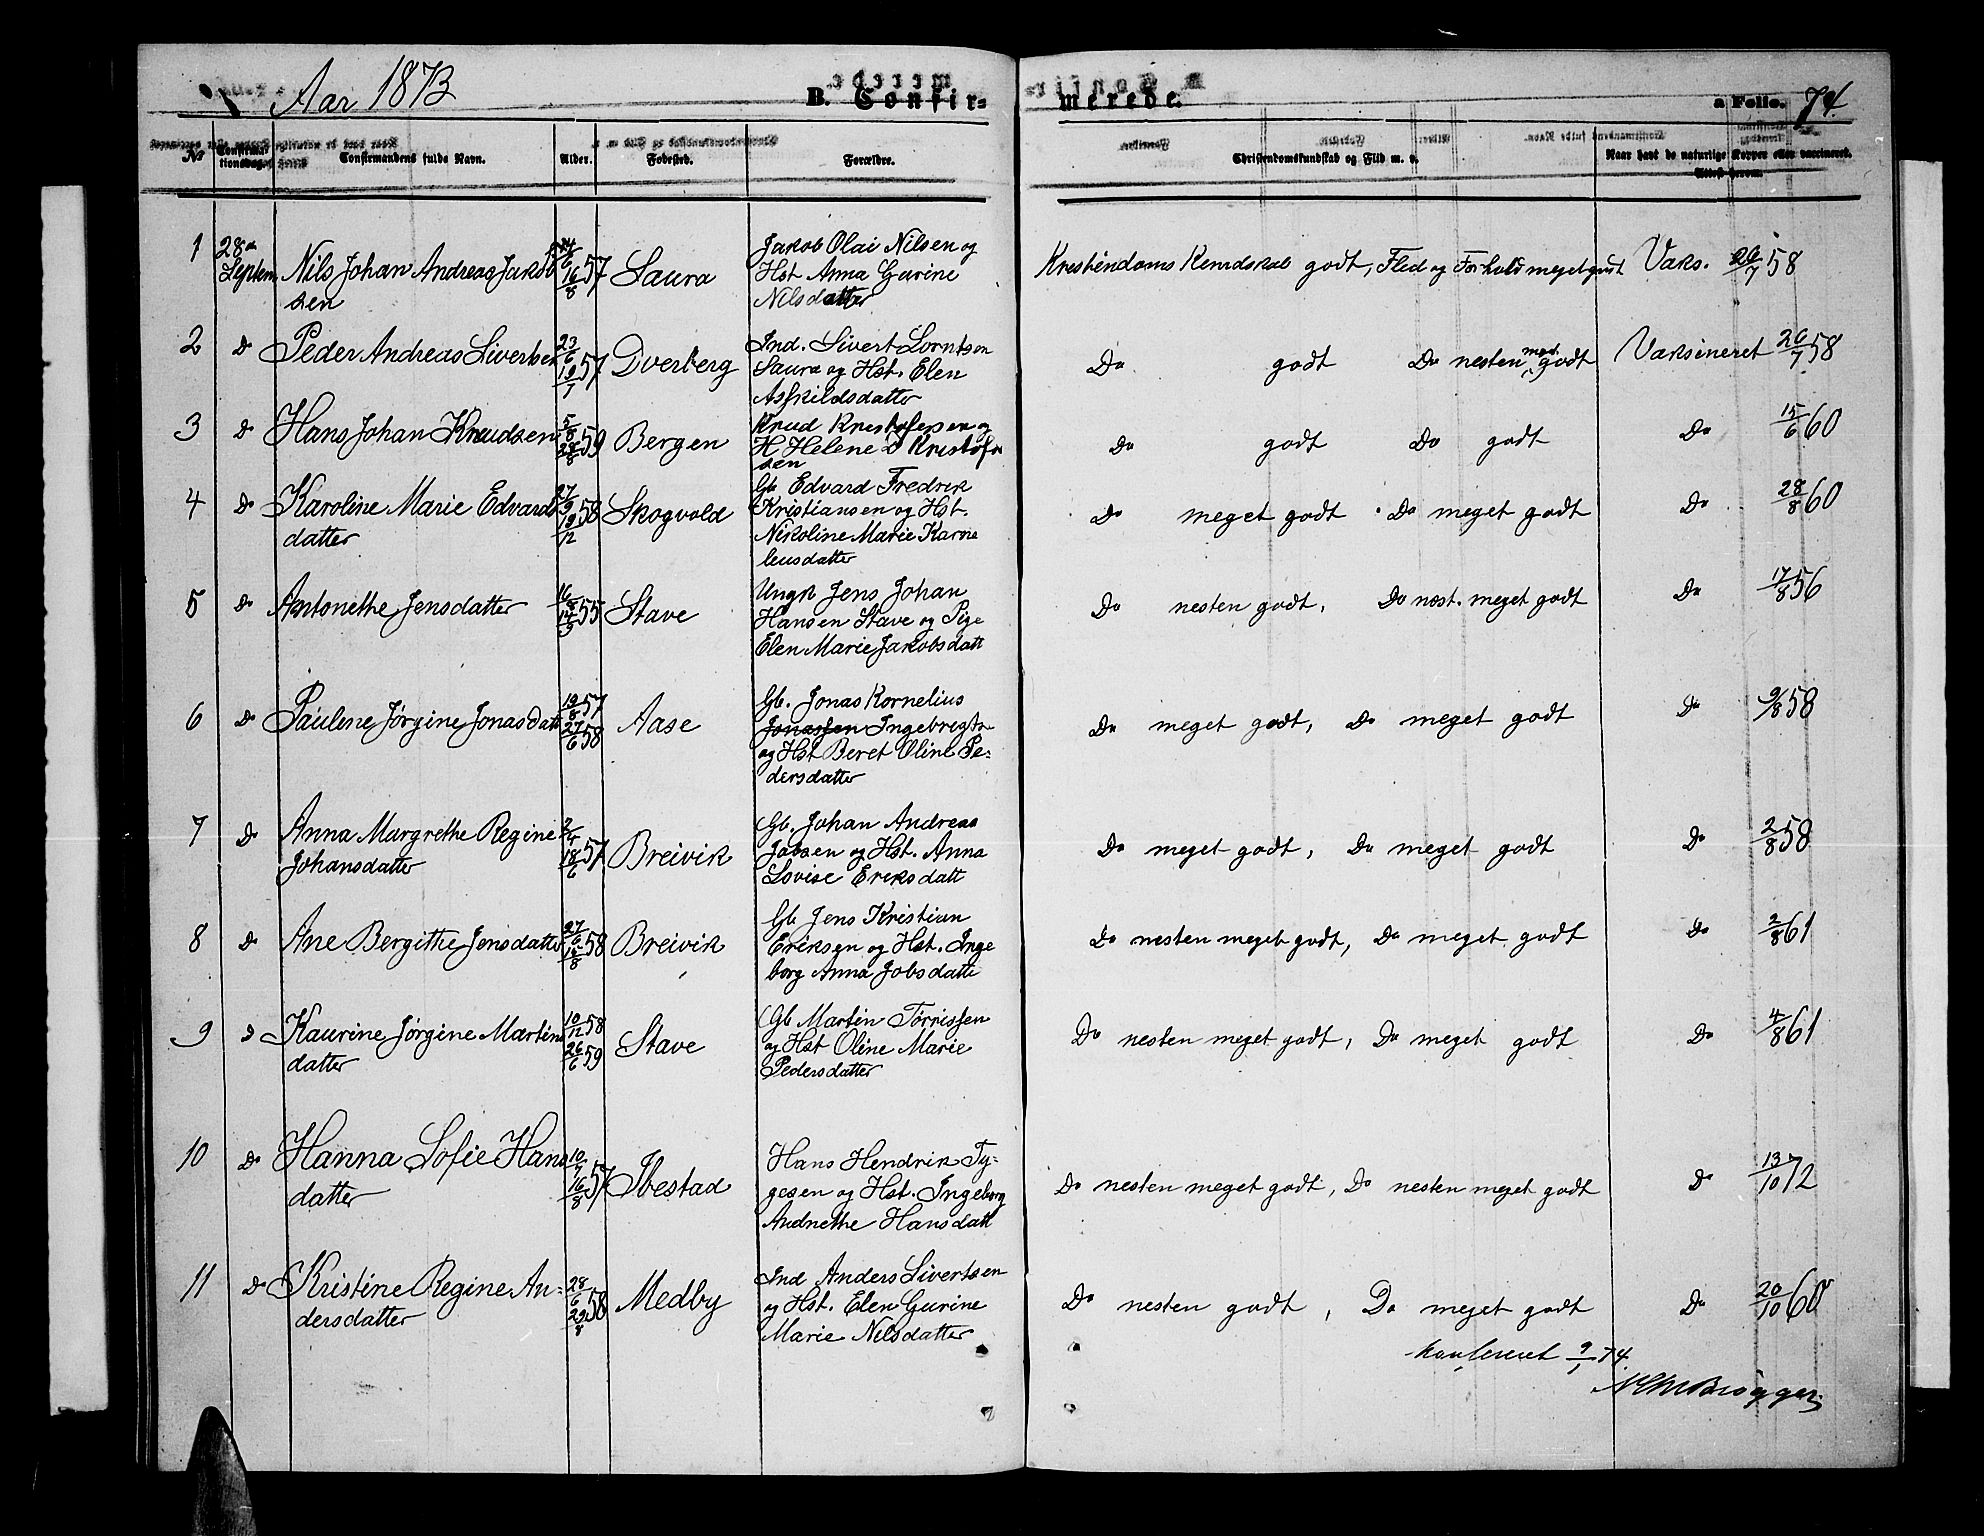 Aar 1873
B. Confir= merede.
a Folio. 74.
No Confirmationsdag. Confirmandens fulde Navn. Alder. Fødested. Forældre. Christendomskundskab og Flid m. v. Naar havt de naturlige Kopper eller vaccineret. Attest herom.
1 28de Septem Nils Johan Andreas Jakobsen 16/8 57 Saura Jakob Olai Nilsen og
Hst Anna Gurine
Nilsdatter
Krestendoms Kundskab godt, Flid og Forhold meget godt Vaks. 26/7 58
2 Do Peder Andreas Sivertsen 23/6 19/7 57 Dverberg Ind. Sivert Lorntsen
Saura og Hst. Elen
Asfkildsdatter
Do godt Do nesten meg. godt Vaksineret 26/7 58
3 Do Hans Johan Knudsen 5/8 28/8 59 Bergen Knud Kristofersen og
H Helene D Kristofersen
Do godt Do godt Do 15/6 60
4 Do Karoline Marie Edvardsdatter 27/9 19/12 58 Skogvold Gb Edvard Fredrik
Kristiansen og Hst.
Nikoline Marie Karneleusdatter
Do meget godt Do meget godt Do 28/8 60
5 Do Antonethe Jensdatter 55 Stave Ungk Jens Johan
Hansen Stave og Pige
Elen Marie Jakobsdatt
Do nesten godt, Do næst. meget godt Do 17/8 56
6 Do Paulene Jørgine Jonasdatt 19/8 57 27/6 58 Aase Gb. Jonas Kornelius
Jonassen Ingebregts
og Hst Beret Oline Pe=
dersdatter
Do meget godt, Do meget godt Do 9/8 58
7 Do Anna Margrethe Regine
Johansdatter 18/6 57 Breivik Gb. Johan Andreas
Jobsen og Hst. Anna
Lovise Eriksdatt
Do meget godt, Do meget godt Do 2/8 58
8 Do Ane Bergithe Jensdatter 58 Breivik Gb Jens Kristian
Eriksen og Hst. Inge
borg Anna Jobsdatt
Do nesten meget godt, Do meget godt Do 2/8 61
9 Do Kaurine Jørgine Martins
datter 10/12 58 26/6 59 Stave Gb Martin Tørrissen
og Hst Oline Marie
Pedersdatter
Do nesten meget godt, Do meget godt Do 4/8 61
10 Do Hanna Sofie Hans
datter 10/7 16/8 57 Ibestad Hans Hendrik Ty=
gesen og Hst. Ingeborg
Andnethe Hansdatt
Do nesten meget godt, Do nesten meget godt Do 13/10 72
11 Do Kristine Regine An=
dersdatter 28/6 29/8 58 Medby Ind Anders Sivertsen
og Hst. Elen Gurine
Marie Nilsdatter
Do nesten godt, Do meget godt Do 20/10 60
konfereret 9/1 74.
Brøgger